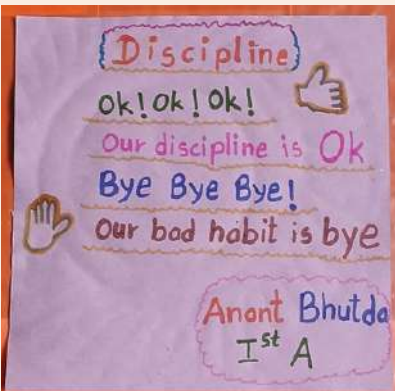 Discipline
Ok! Ok! Ok!
Our discipline is Ok
Bye Bye Bye!
Our bad habit is bye
Anant Bhutda
Ist A